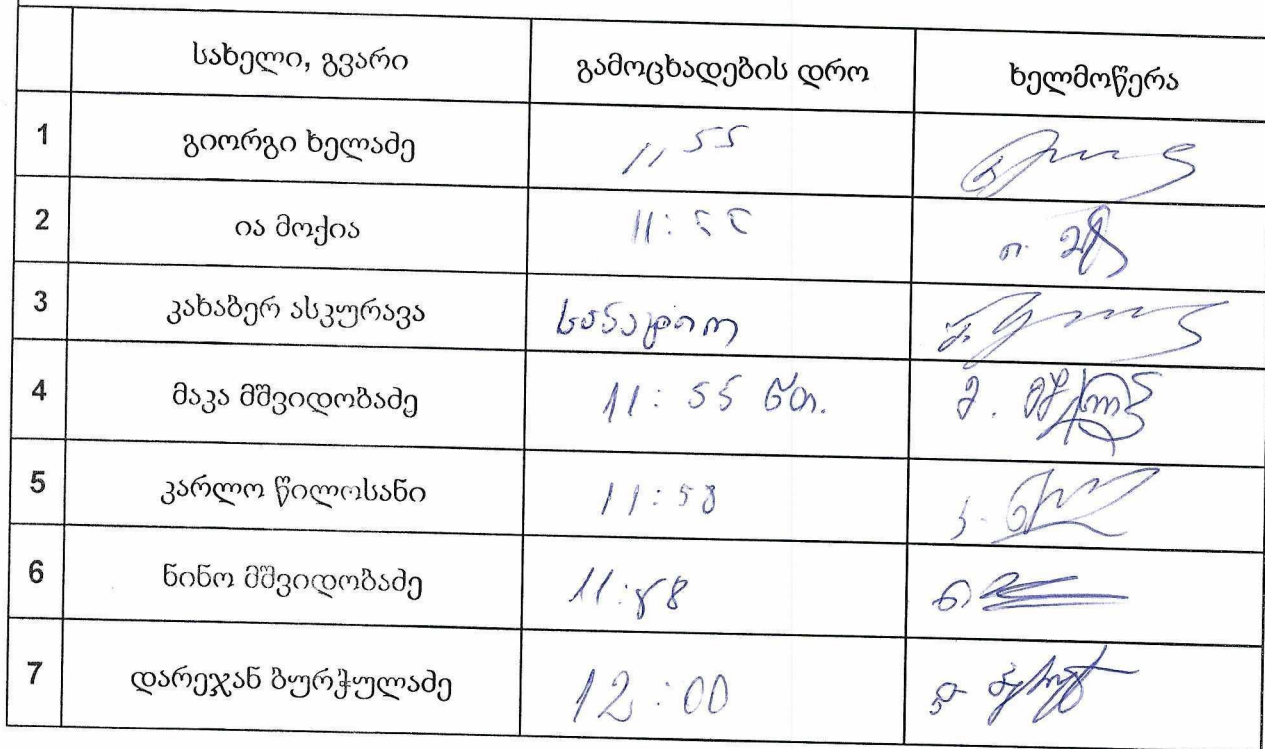 სახელი, გვარი გამოცხადების დრო ხელმოწერა
1 გიორგი ხელაძე 11 55
2 ია მოქია 11:55
3 კახაბერ ასკურავა
4 მაკა მშვიდობაძე 11:55 წთ.
5 კარლო წილოსანი 11:58
6 ნინო მშვიდობაძე 11:58
7 დარეჯან ბურჭულაძე 12:00